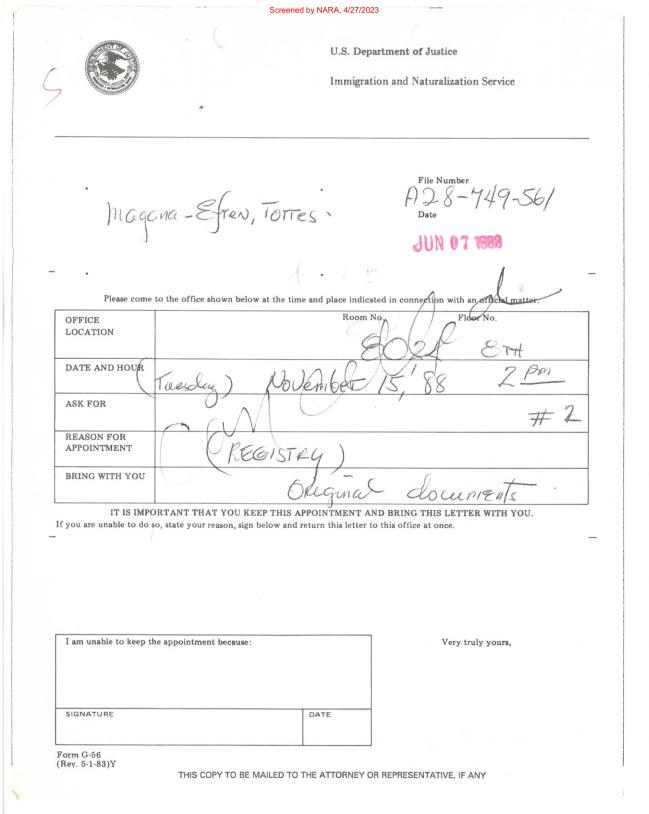 Screened by NARA, 4/27/2023
U.S. Department of Justice
Immigration and Naturalization Service
File Number
A28-749-561
Magana-Efren, Torres.
Date
JUN 07 1988
Please come to the office shown below at the time and place indicated in connection with an official matter.
OFFICE LOCATION
Room No.
Floor No.
8TH
DATE AND HOUR
(Tuesday) November 15, '88 2 pm
ASK FOR
# 2
REASON FOR APPOINTMENT
(REGISTRY)
BRING WITH YOU
Original documents
IT IS IMPORTANT THAT YOU KEEP THIS APPOINTMENT AND BRING THIS LETTER WITH YOU.
If you are unable to do so, state your reason, sign below and return this letter to this office at once.
I am unable to keep the appointment because:
Very truly yours,
SIGNATURE
DATE
Form G-56
(Rev. 5-1-83)Y
THIS COPY TO BE MAILED TO THE ATTORNEY OR REPRESENTATIVE, IF ANY